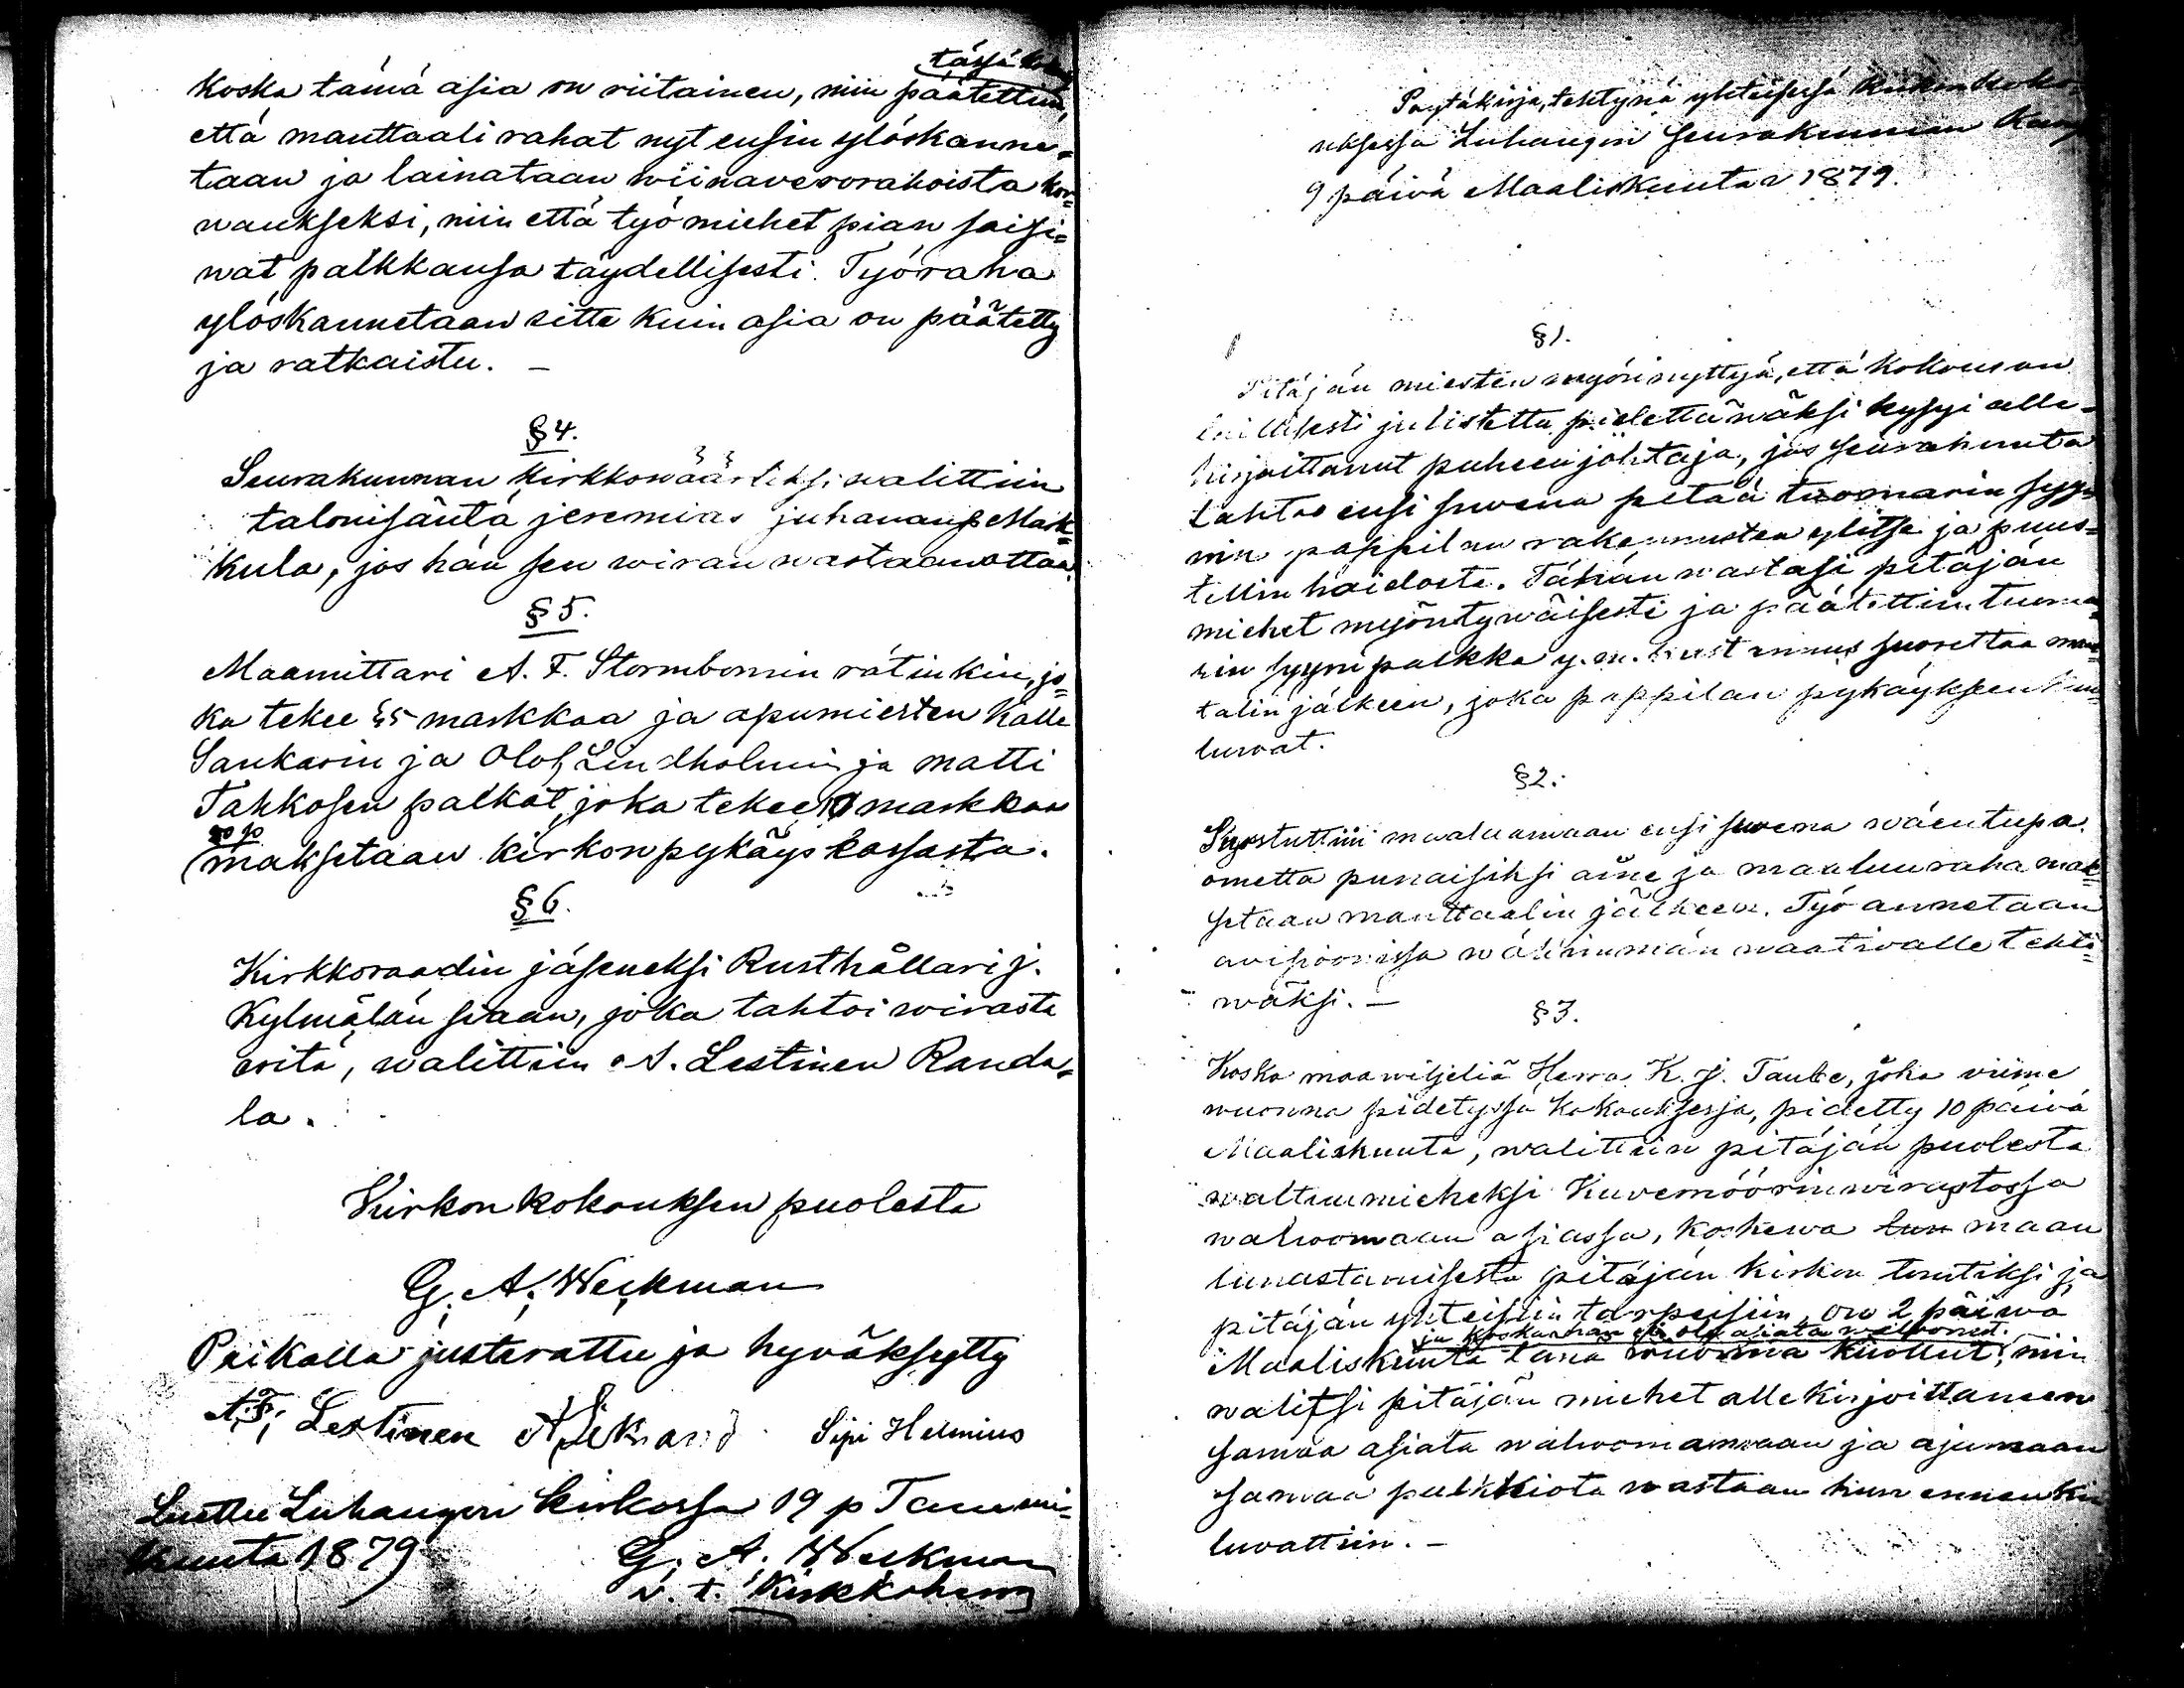 tässä
koska tämä asia on riitainen, niin päätettiin,
että manttaali rahat nyt ensin ylöskanne=
taan ja lainataan wiinaverorahoista kor=
waukseksi, niin että työmiehet pian saisi=
wat palkkansa täydellisesti. Työraha
ylöskannetaan sitte kuin asia on päätetty
ja ratkaistu. –
§ 4.
Seurakunnan Kirkkowäärtiksi walittiin
talonisäntä jeremias juhananp. Mark=
kula, jos hän sen wiran wastaanottaa.
§ 5.
Maamittari A. F. Stormbomin rätinkin, jo=
ka tekee 45 markkaa ja apumiesten Kalle
Sankarin ja Olof Lindholmin ja matti
Tahkosen palkat, joka tekee markkaa
maksetaan kirkonpykäys kassasta.
§ 6.
Kirkkoraadin jäseneksi Rusthållari J.
Kylmälän siaan, joka tahtoi wirasta
eritä, walittiin A. Lestinen Randa=
la.
Kirkonkokouksen puolesta
G. A. Weckman
Paikalla justerattu ja hyväksytty
A. F. Lestinen Sipi Helenius
Luettu Luhangon kirkossa 19 p Tammi=
kuuta 1879 G. A. Weckman
v. t. Kirkkoherra
Pöytäkirja, tehtynä yhteisessä Kirkonkoko=
uksessa Luhangon seurakunnan
9 päivä Maaliskuuta 1879.
§ 1.
Pitäjän miesten myöninyttyä, että Kokous on
laillisesti julistettu pidettäwäksi kysyi alle=
kirjoittanut puheenjohtaja, jos seurakunta
tahtoo ensi suwena pitää tuomarin syy=
nin pappilan rakennusten ylitse ja puus=
tellin hoidosta. Tähän wastasi pitäjän
miehet myöntywäisesti ja päätettiin tuoma=
rin syynipalkka y. m. kustannus suorittaa man=
talin jälkeen, joka pappilan pykäykseen kuu=
luwat.
§ 2.
Suostuttiin maalaamaan ensi suwena wäentupa
ometta punaisiksi aine ja maaluuraha mak=
setaan manttaalin jälkeen. Työ annetaan
wähimmän waatiwalle tehtä=
wäksi. –
§ 3.
Koska maawiljeliä Herra K. J. Taube, joka viime
wuonna pidetyssä kokouksessa, pidetty 10 päivä
Maaliskuuta, walittiin pitäjän puolesta
waltuumieheksi Kuvernöörinwirastossa
walwomaan asiassa, koskewa maan
lunastamisesta pitäjän kirkon tontiksi ja
pitäjän yhteisiin tarpeisiin, on 2 päiwä
ja koska hän ei ole asiata walwonut.
Maaliskuuta tänä wuonna kuollut, niin
walitsi pitäjän miehet allekirjoittaneen
samaa asiata walwomamaan ja ajamaan
samaa palkkiota wastaan kun ennen
luvattiin. –